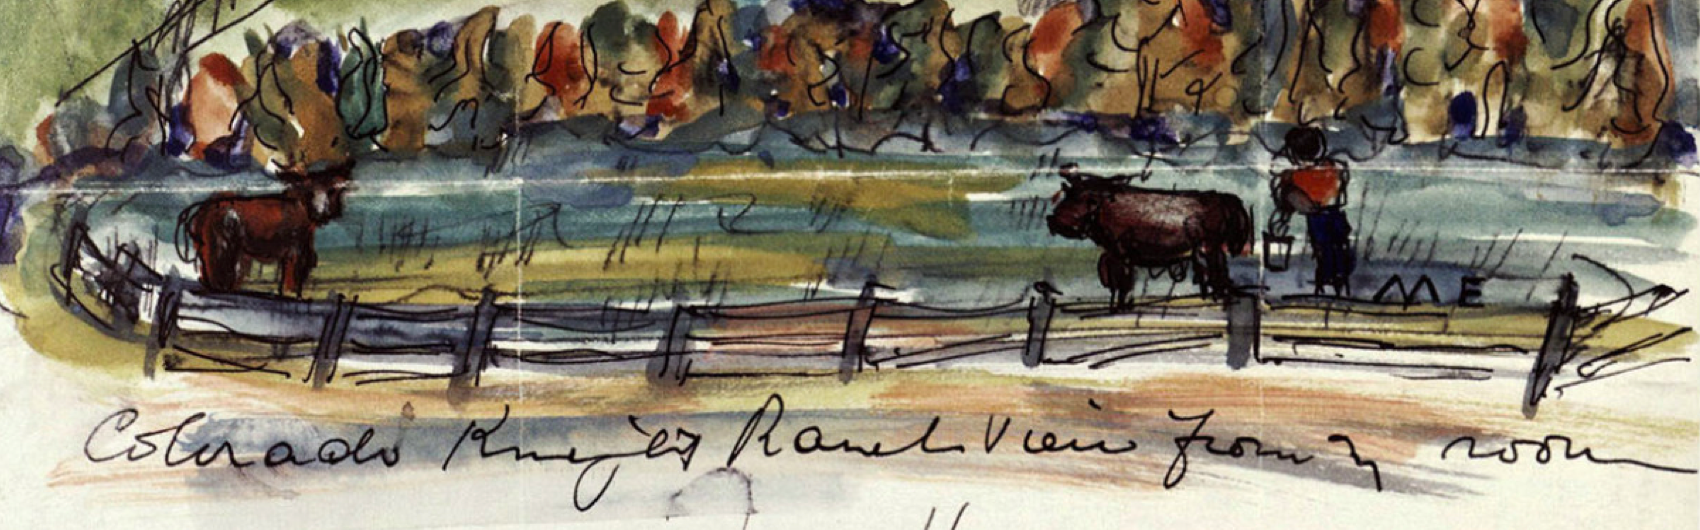 ME
Colorado Ranch View from my room